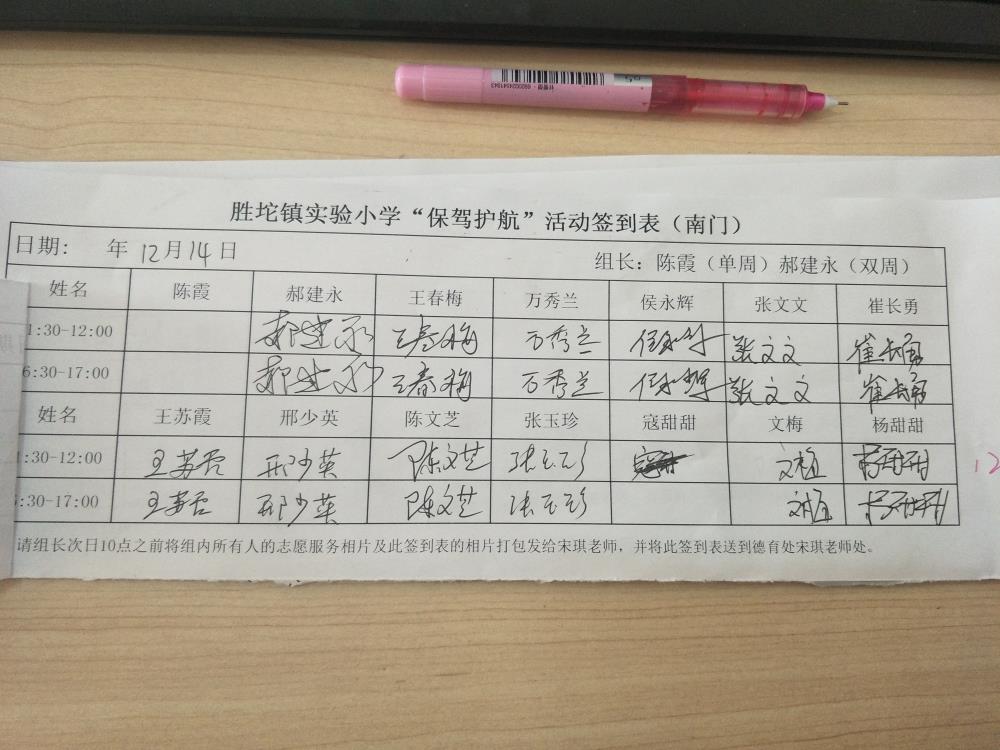 胜坨镇实验小学“保驾护航”活动签到表（南门）
日期： 年 12月14日 组长：陈霞（单周）郝建永（双周）
姓名 陈霞 郝建永 王春梅 万秀兰 侯永辉 张文文 崔长勇
1:30-12:00 郝建永 王春梅 万秀兰 侯永辉 张文文 崔长勇
6:30-17:00 郝建永 王春梅 万秀兰 侯永辉 张文文 崔长勇
姓名 王苏霞 邢少英 陈文芝 张玉珍 寇甜甜 文梅 杨甜甜
1:30-12:00 王苏霞 邢少英 陈文芝 张玉珍 文梅 杨甜甜
6:30-17:00 王苏霞 邢少英 陈文芝 张玉珍 文梅 杨甜甜
12
请组长次日10点之前将组内所有人的志愿服务相片及此签到表的相片打包发给宋琪老师，并将此签到表送到德育处宋琪老师处。